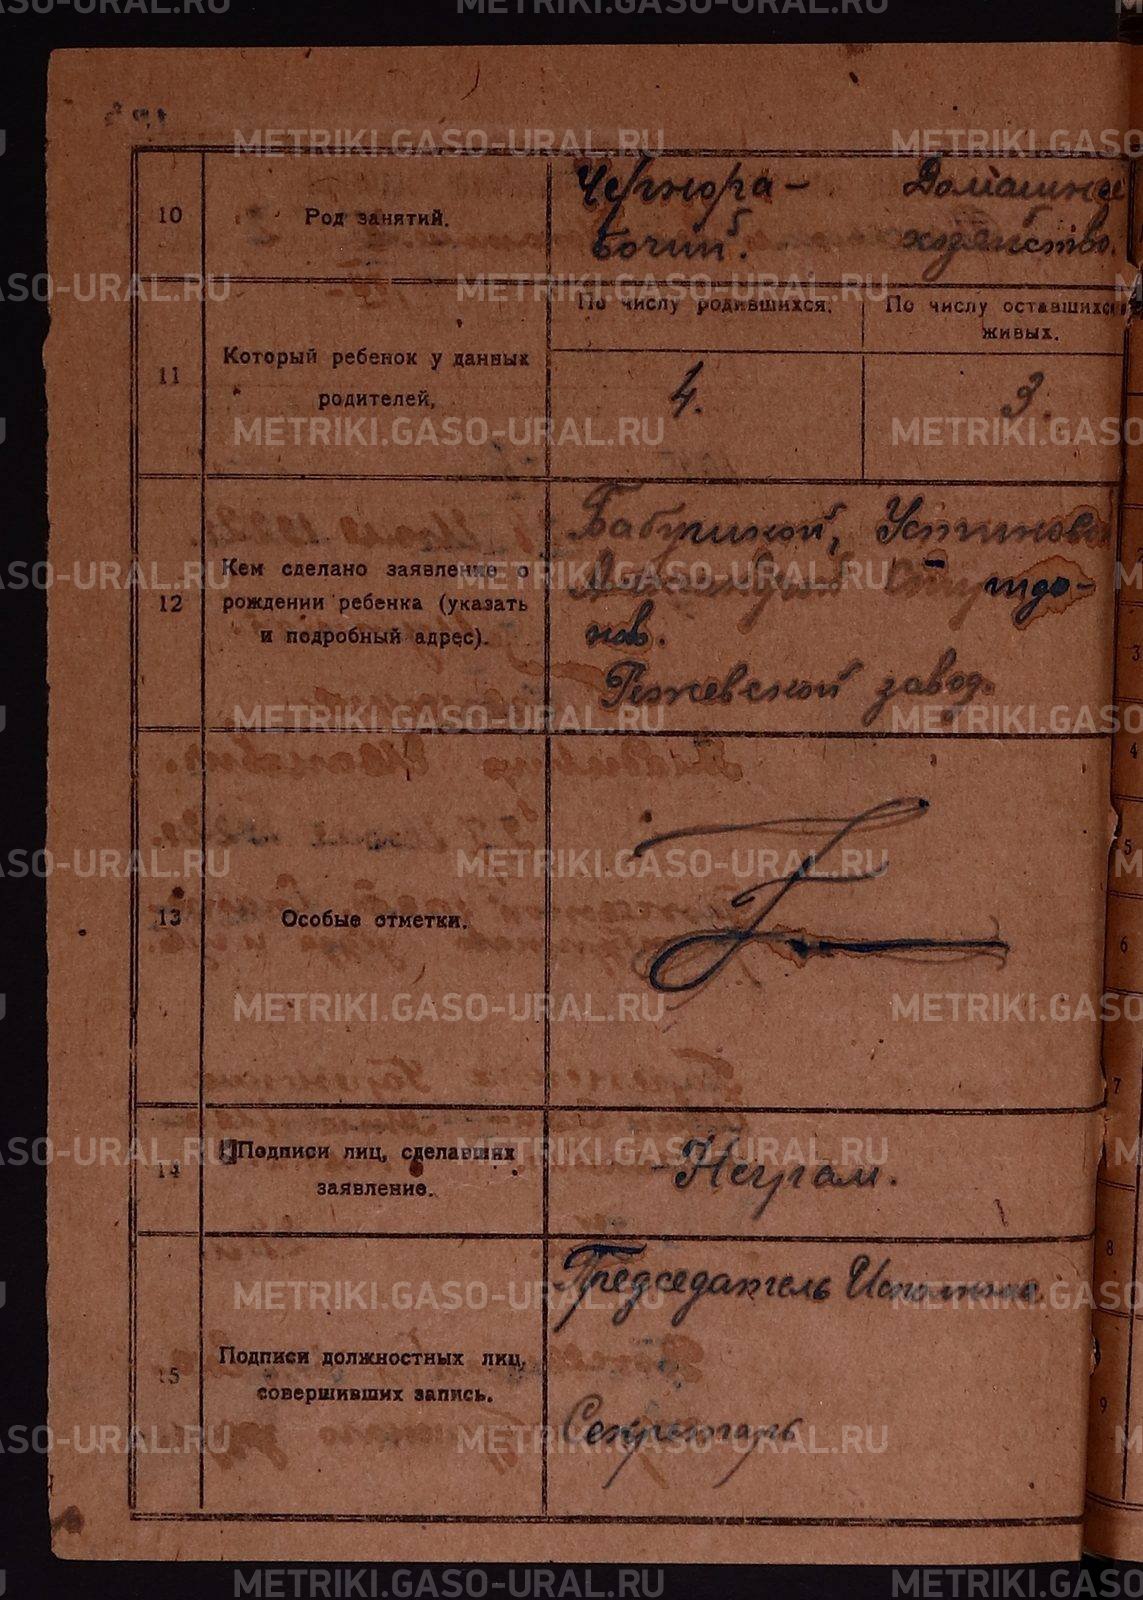 METRIKI.GASO-URAL.RU
10
Род занятий.
Чернора-
бочий.
Домашнее
хозяйство.
11
Который ребенок у данных
родителей,
По числу родившихся.
По числу оставшихся
живых.
4.
3.
12
Кем сделано заявление о
рождении ребенка (указать
и подробный адрес).
Бабушкой, Устиновой
Режевской завод.
13
Особые отметки.
14
Подписи лиц, сделавших
заявление.
-Неграм.
15
Подписи должностных лиц,
совершивших запись.
Председатель Исполкома
Секретарь
3
4
5
6
7
8
9